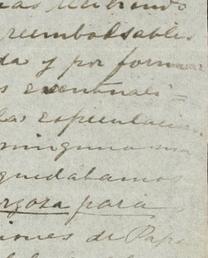 mas recibiendo
reembolsables
da y por formar
s eventuali=
las especulacion
ninguna
quedábamos
rgoza para
iones de Papa